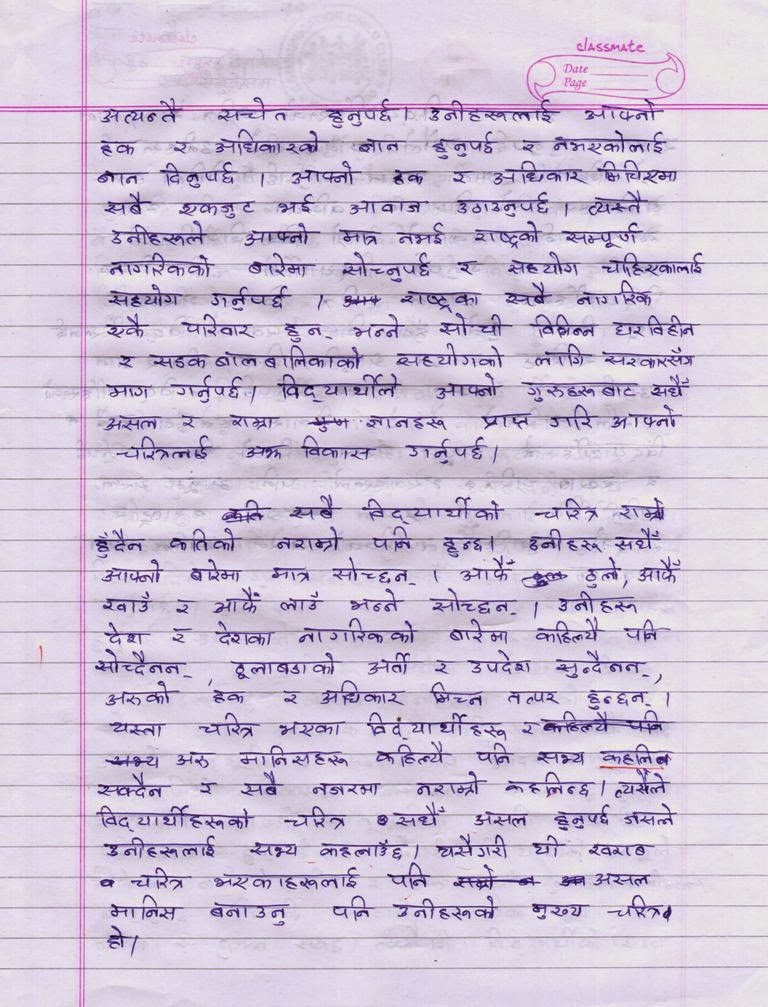 classmate
Date
Page
अत्यन्तै सचेत हुनुपर्छ। उनीहरूलाई आफ्नो
हक र अधिकारको ज्ञान हुनुपर्छ र नभएकोलाई
ज्ञान दिनुपर्छ । आफ्नो हक र अधिकार मिचिएमा
सबै एकजुट भई आवाज उठाउनुपर्छ । त्यस्तै
उनीहरूले आफ्नो मात्र नभई राष्ट्रको सम्पूर्ण
नागरिकको बारेमा सोच्नुपर्छ र सहयोग चाहिएकालाई
सहयोग गर्नुपर्छ । राष्ट्रका सबै नागरिक
एकै परिवार हुन् भन्ने सोची विभिन्न घरविहीन
र सडक बालबालिकाको सहयोगको लागि सरकारसँग
माग गर्नुपर्छ। विद्यार्थीले आफ्नो गुरुहरूबाट सधैँ
असल र राम्रा ज्ञानहरू प्राप्त गरि आफ्नो
चरित्रलाई अझ विकास गर्नुपर्छ।
सबै विद्यार्थीको चरित्र राम्रो
हुँदैन कतिको नराम्रो पनि हुन्छ। उनीहरू सधैँ
आफ्नो बारेमा मात्र सोच्छन् । आफैँ ठुलो, आफैँ
खाउँ र आफैँ लाउँ भन्ने सोच्छन् । उनीहरू
देश र देशका नागरिकको बारेमा कहिल्यै पनि
सोच्दैनन् , ठूलाबडाको अर्ती र उपदेश सुन्दैनन् ,
अरुको हक र अधिकार मिच्न तत्पर हुन्छन् ।
यस्ता चरित्र भएका विद्यार्थीहरू र कहिल्यै पनि
सभ्य अरु मानिसहरू कहिल्यै पनि सभ्य कहलिन
सक्दैन र सबै नजरमा नराम्रो कहलिन्छ। त्यसैले
विद्यार्थीहरूको चरित्र सधैँ असल हुनुपर्छ जसले
उनीहरूलाई सभ्य कहलाउँछ। यसैगरी यी खराब
चरित्र भएकाहरूलाई पनि असल
मानिस बनाउनु पनि उनीहरूको मुख्य चरित्र
हो।